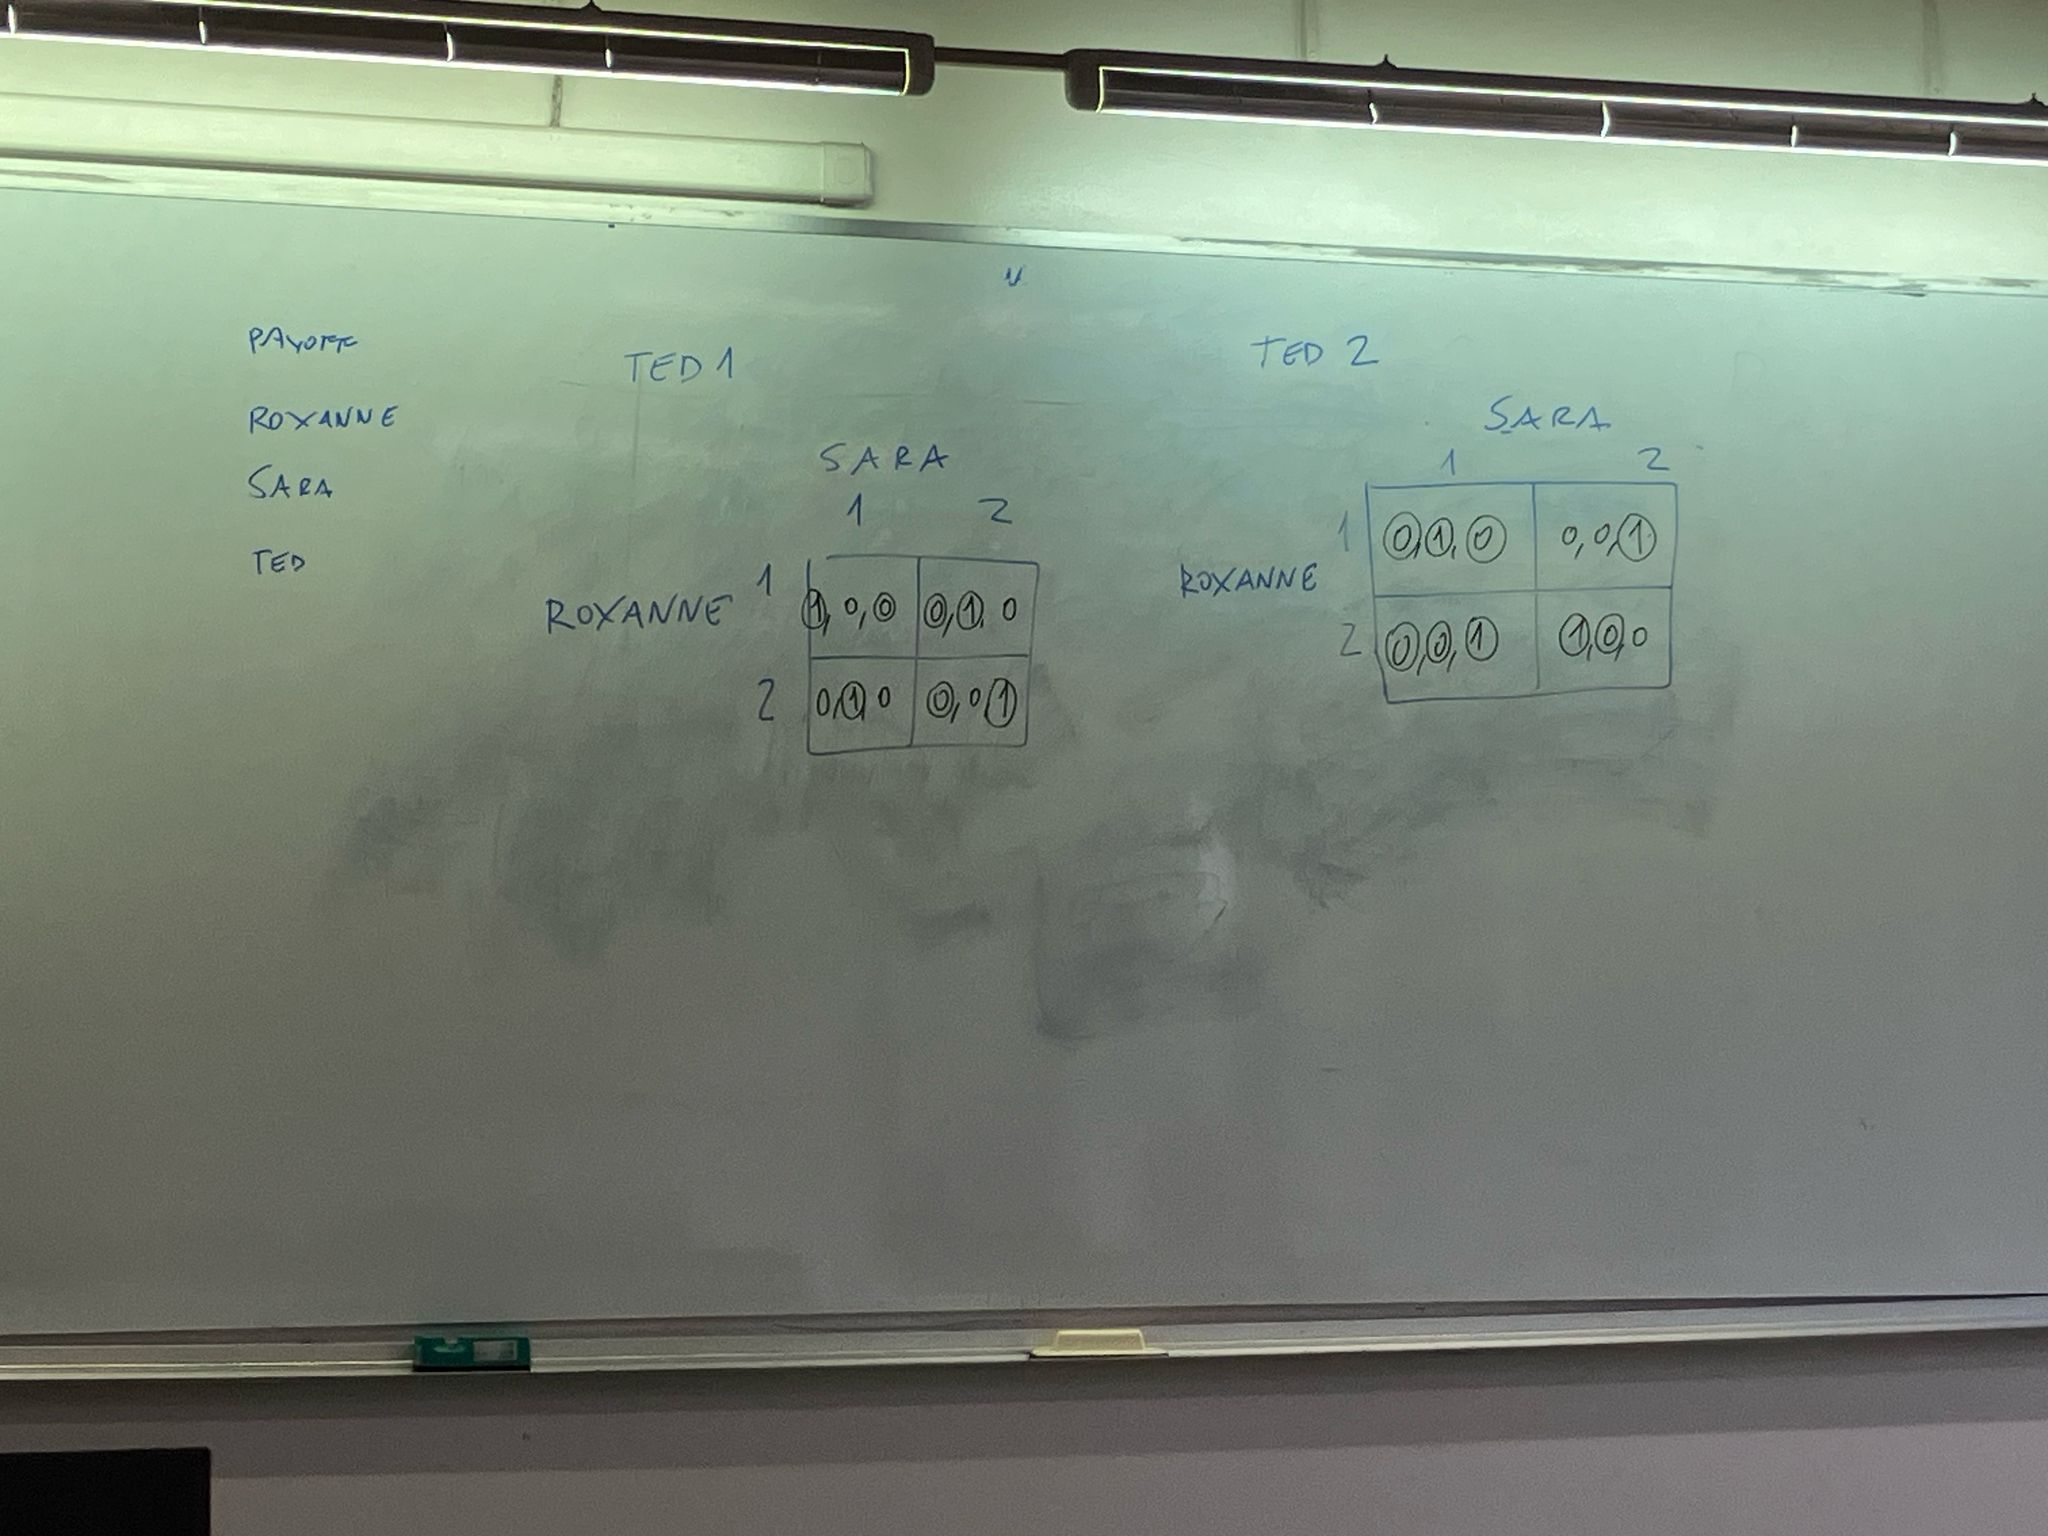 PAYOFF
ROXANNE
SARA
TED
TED 1
SARA
1 2
ROXANNE
1
1, 0, 0 0, 1, 0
2
0, 1, 0 0, 0, 1
TED 2
SARA
1 2
ROXANNE
1
0, 1, 0 0, 0, 1
2
0, 0, 1 1, 0, 0